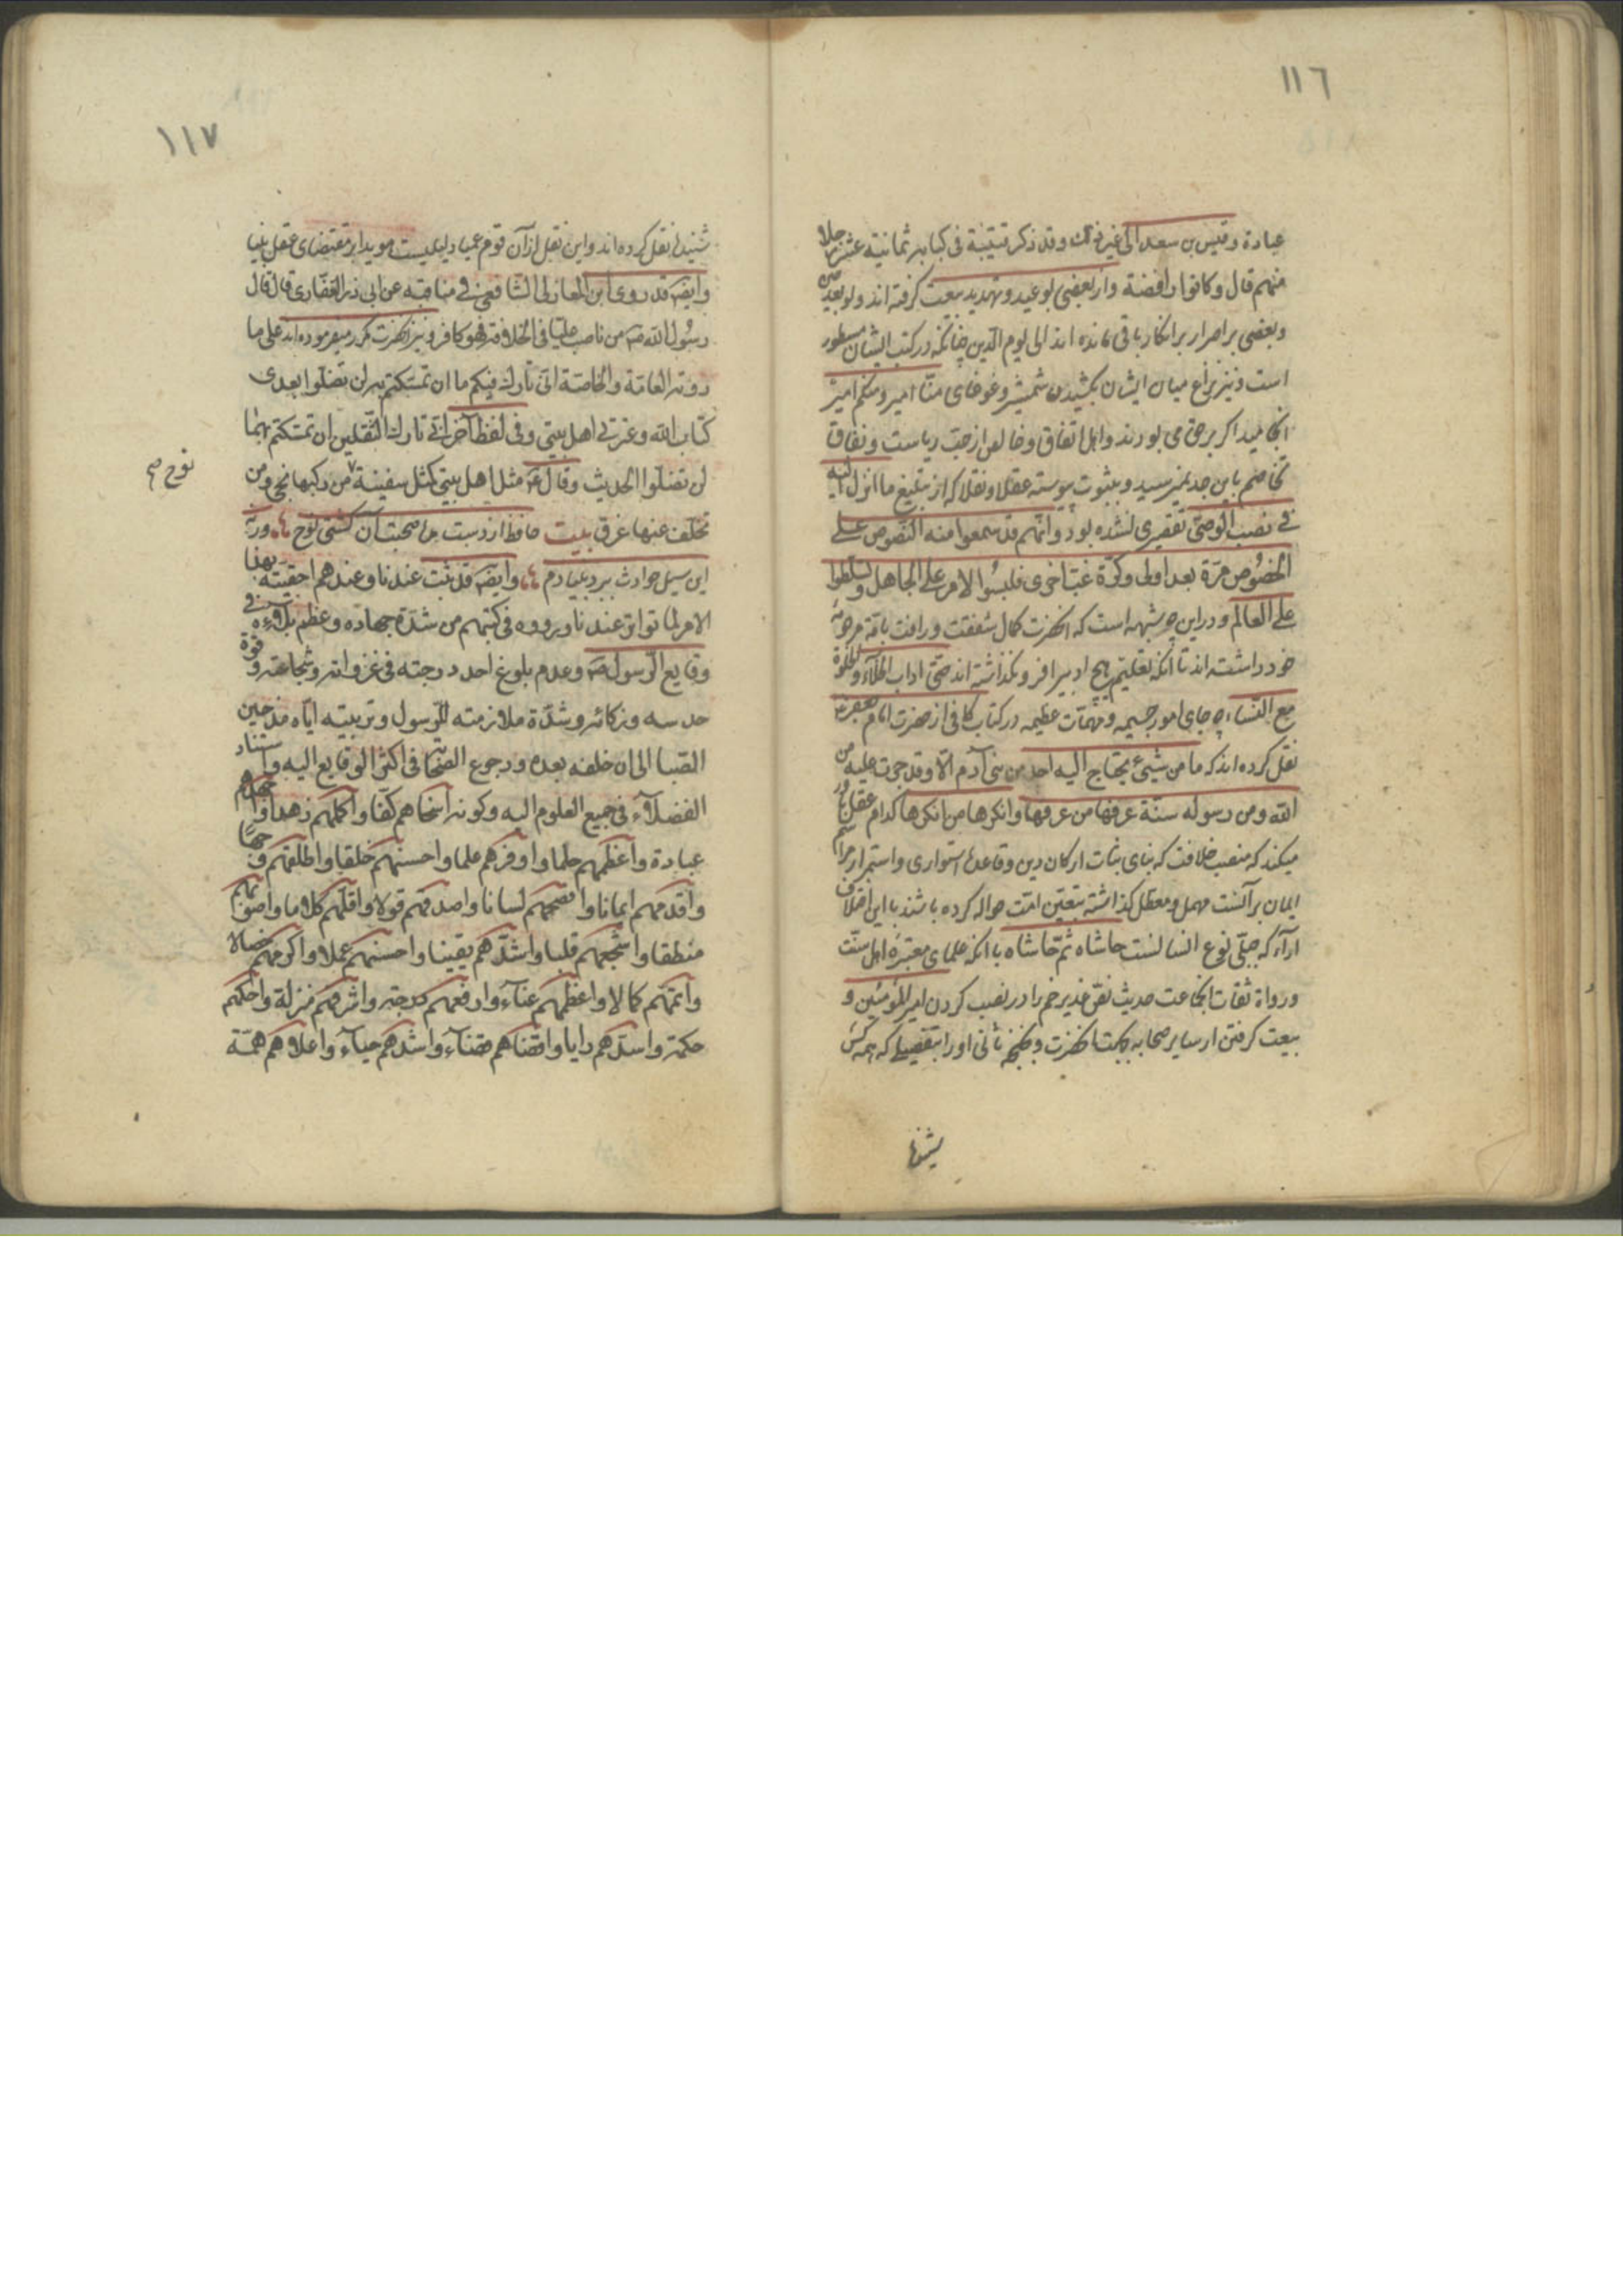 ١١٦
عبادة وقيس بن سعد الى غير ذلك وقد ذكر قتيبة في كتابه ثمانية عشر رجلا
منهم قال وكانوا رافضة واز بعضى بوعيد وتهديد بيعت كرفته اند ولو بعد حين
وبعضى بر اصرار بر انكار باقى مانده اند الى يوم الدين چنانكه در كتب ايشان مسطور
است ونيز نزاع ميان ايشان بكشيدن شمشير وغوغاى منّا امير ومنكم امير
انجاميد اكر بر حق مى بودند واهل اتفاق وخالص از حبّ رياست ونفاق
تخاصم باين حد نميرسيد وبثبوت پيوسته عقلا ونقلا كه از تبليغ ما انزل اليه
في نصب الوصىّ تقصيرى نشده بود وانّهم قد سمعوا منه النّصوص على
الخصوص مرّة بعد اولى وكرّة غبّ اخرى فلبسوا الامر على الجاهل وتسلطوا
على العالم ودر اين چه شبهه است كه آنحضرت كمال شفقت ورافت بامّة مرحومه
خود داشته اند تا آنكه تعليم هيچ ادبى را فرو نكذاشته اند حتّى اداب الخلاء والخلوة
مع النّساء چه جاى امور جسيمه ومهمّات عظيمه در كتاب كافى از حضرت امام جعفر
نقل كرده اند كه ما من شيئ يحتاج اليه احد من بنى آدم الّا وقد جرت عليه من
اللّه ومن رسوله سنّة عرفها من عرفها وانكرها من انكرها كدام عقل باور
ميكند كه منصب خلافت كه بناى ثبات اركان دين وقاعدهٔ استوارى واستمرار مراسم
ايمان بر آنست مهمل ومعطل كذاشته بتعيّن امّت حواله كرده باشند با اين اختلاف
آراء كه جبلّى نوع انسانست حاشاه ثمّ حاشاه با آنكه علماى معتبرهٔ اهل سنّت
ورواة ثقات انجماعت حديث نصّ غدير خم را در نصب كردن امير المؤمنين و
بيعت كرفتن از ساير صحابه بجهت آنحضرت وبخبخ ثانى او را بتفصيلى كه همه كس
١١٧
شنيده نقل كرده اند واين نقل از آن قوم عمياء دليليست مويد ابر مقتضاى عقل بينا
وايضا قد روى ابن المغازلى الشّافعى في مناقبه عن ابى ذر الغفارى قال قال
رسول اللّه ص من ناصب عليّا في الخلافة فهو كافر ونيز آنحضرت مكرر ميفرموده اند على ما
روته العامّة والخاصّة انّى تارك فيكم ما ان تمسّكتم به لن تضلّوا بعدى
كتاب اللّه وعترتى اهل بيتى وفى لفظ آخر انّى تارك الثّقلين ان تمسّكتم بهما
لن تضلّوا الحديث وقال ص مثل اهل بيتى كمثل سفينة من ركبها نجى ومن
نوح ص
تخلّف عنها غرق بيت حافظ از دست مده صحبت آن كشتى نوح ورنه
اين سيل حوادث ببرد بنيادم وايضا قد ثبت عندنا وعندهم احقيّته بهذا
الامر لما تواتر عندنا ويرووه في كتبهم من شدّة جهاده وعظم بلائه في
وقايع الرّسول ص وعدم بلوغ احد درجته في غزواته وشجاعته وقوّة
حدسه وذكائه وشدّة ملازمته للرّسول وتربيته ايّاه مذ حين
الصّبا الى ان خلفه بعده ورجوع الصّحابة في اكثر الوقايع اليه واستناد
الفضلاء في جميع العلوم اليه وكونه اسخاهم كفّا واكملهم زهدا واجهدهم
عبادة واعظمهم حلما واوفرهم علما واحسنهم خلقا واطلقهم وجها
واقدمهم ايمانا وافصحهم لسانا واصدقهم قولا واقلّهم كلاما واصوبهم
منطقا واشجعهم قلبا واشدّهم يقينا واحسنهم عملا واكرمهم خصالا
واتمّهم كمالا واعظمهم عناء وارفعهم درجة واشرفهم منزلة واحكمهم
حكمة واسدّهم رايا واقضاهم قضاء واشدّهم حياء واعلاهم همّة